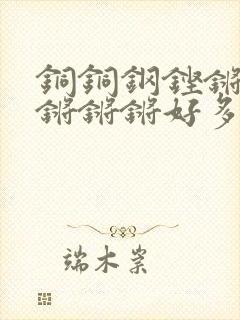 銅銅鋼鏗鏘
鏘鏘鏘好多
端木景